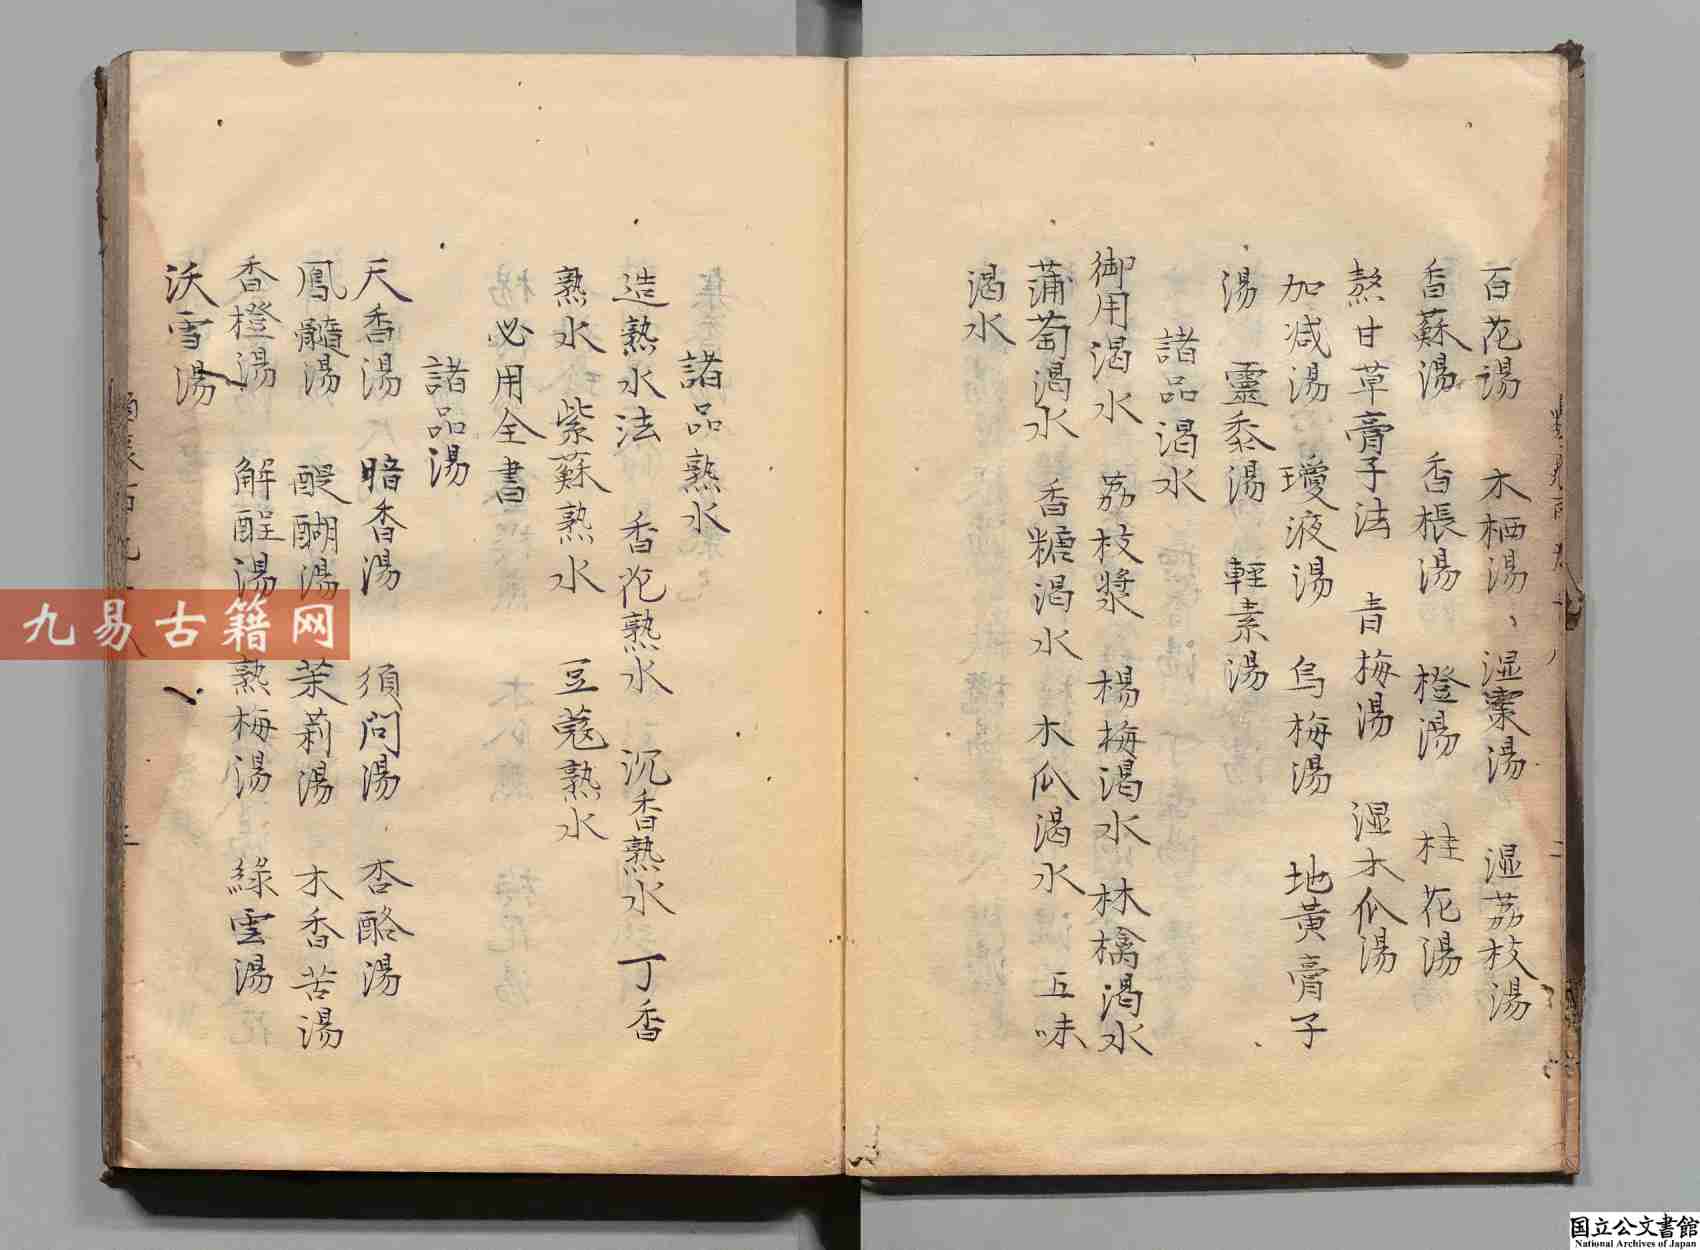 百花湯 木栖湯 湿棗湯 湿荔枝湯
香蘇湯 香棖湯 橙湯 桂花湯
熬甘草膏子法 青梅湯 湿木瓜湯
加减湯 瓊液湯 烏梅湯 地黃膏子
湯 靈黍湯 輕素湯
諸品渴水
御用渴水 荔枝漿 楊梅渴水 林檎渴水
蒲萄渴水 香糖渴水 木瓜渴水 五味
渴水
諸品熟水
造熟水法 香花熟水 沉香熟水 丁香
熟水 紫蘇熟水 豆蔻熟水
必用全書
諸品湯
天香湯 暗香湯 須問湯 杏酪湯
鳳髓湯 醍醐湯 茉莉湯 木香苦湯
香橙湯 解酲湯 熟梅湯 綠雲湯
沃雪湯
九易古籍网
国立公文書館
National Archives of Japan